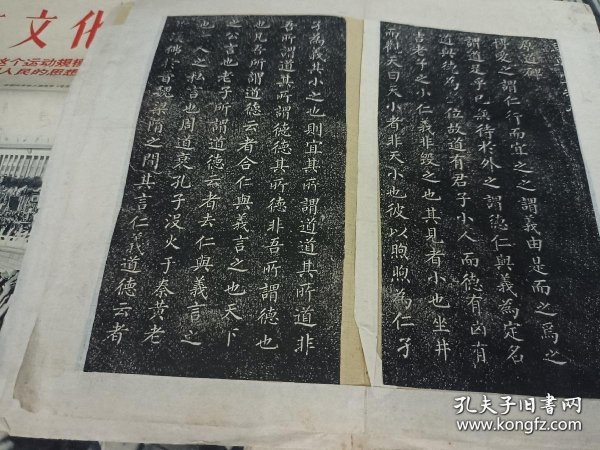 文化
这个运动规模
人民的思想
原道碑
博愛之謂仁行而宜之之謂義由是而之焉之
謂道足乎己無待於外之謂德仁與義為定名
道與德為虛位故道有君子小人而德有凶有
吉老子之小仁義非毀之也其見者小也坐井
而觀天曰天小者非天小也彼以煦煦為仁孑
孑為義其小之也則宜其所謂道道其所道非
吾所謂道其所謂德德其所德非吾所謂德也
凡吾所謂道德云者合仁與義言之也天下
之公言也老子所謂道德云者去仁與義言之
也一人之私言也周道衰孔子沒火于秦黃老
于漢佛於晉魏梁隋之間其言仁義道德云者
孔夫子旧书网
www.kongfz.com